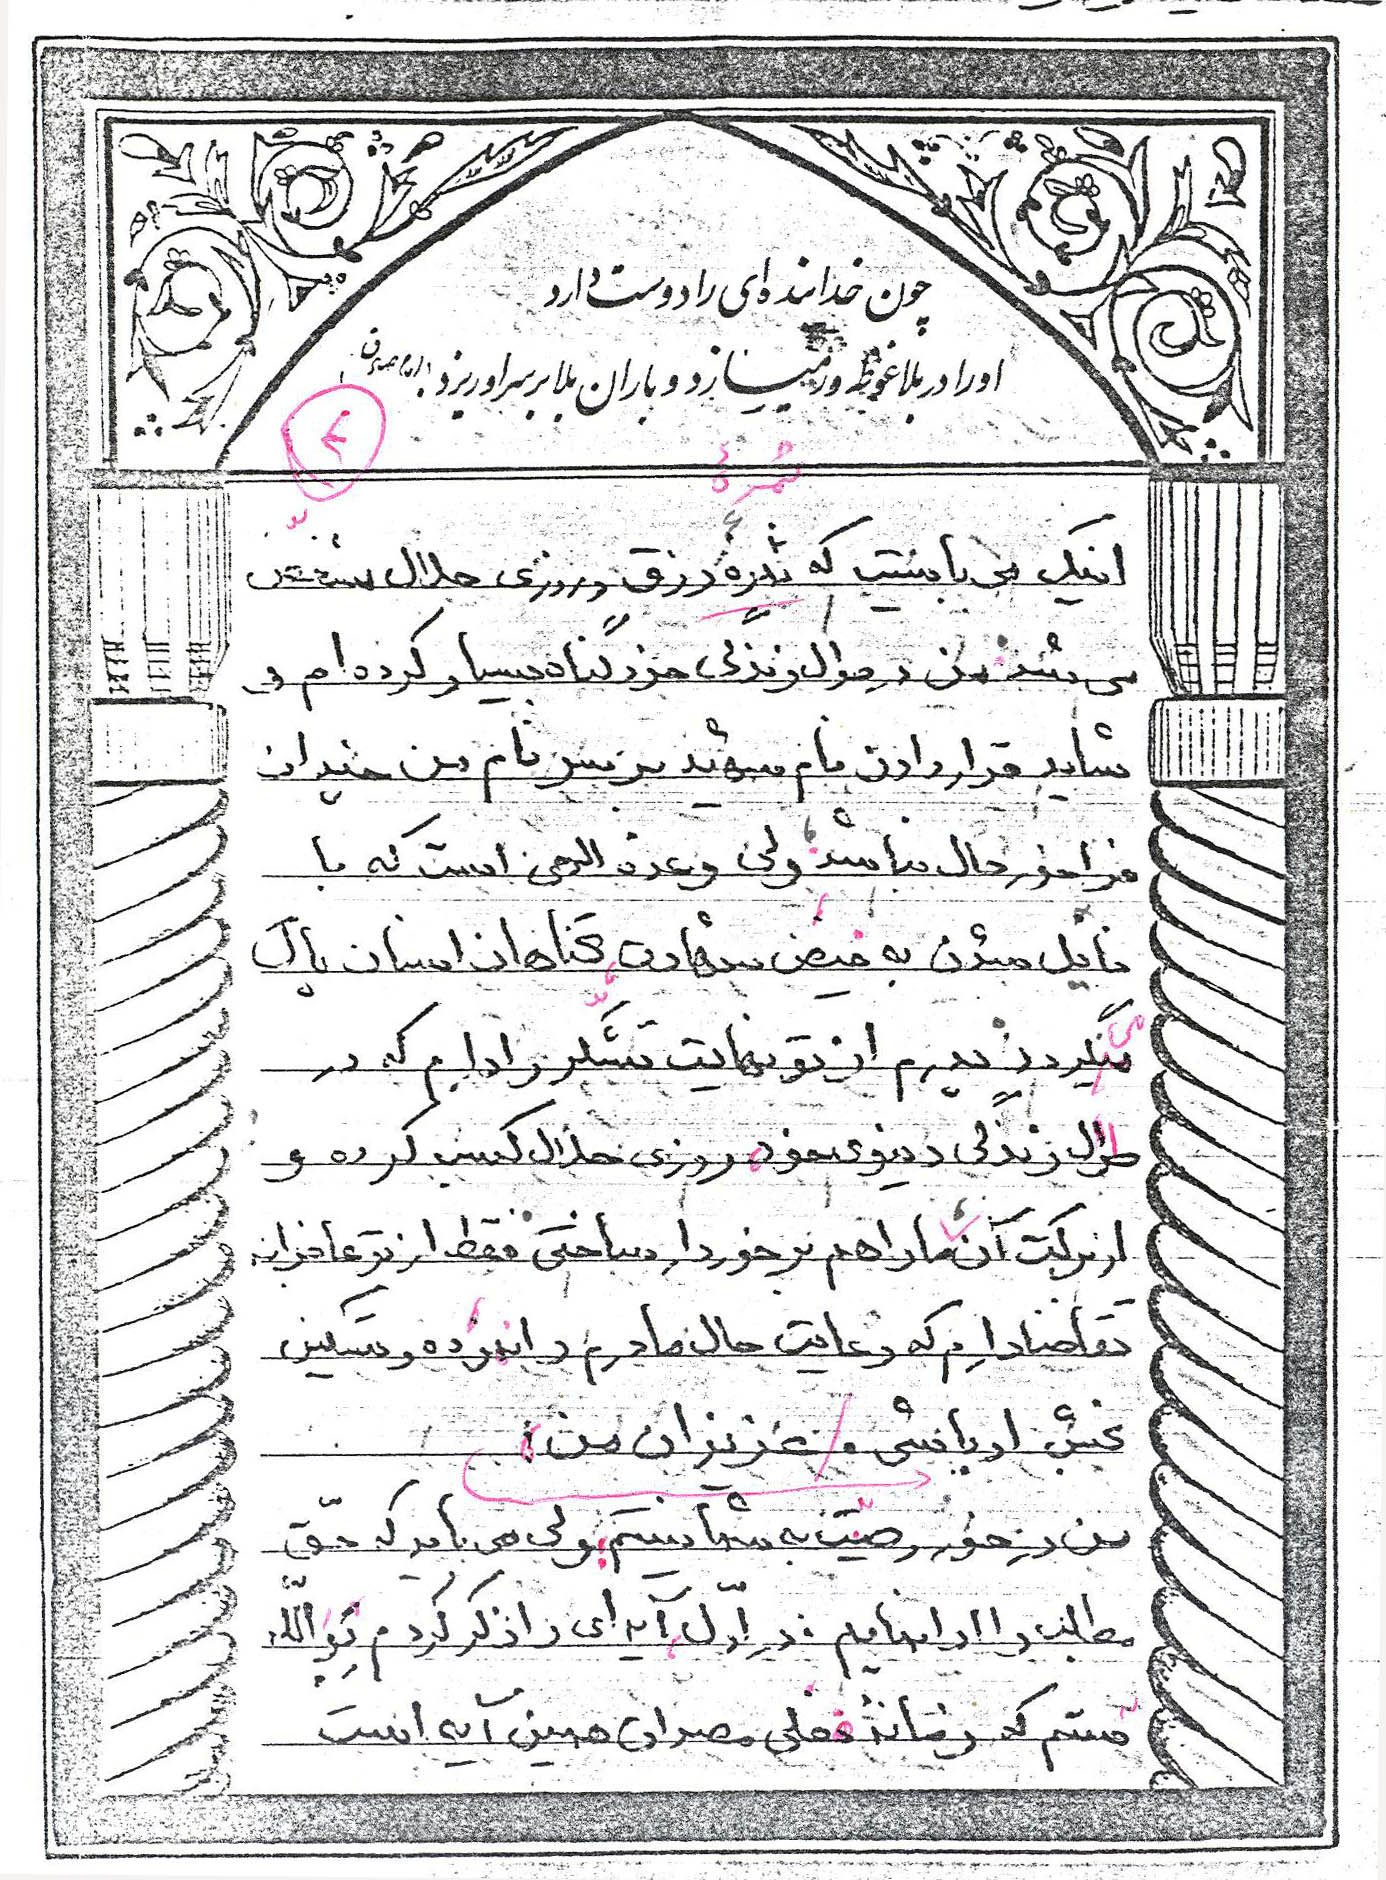 چون خدا بنده‌ای را دوست دارد
او را در بلا غوطه ور میسازد و باران بلا بر سر او ریزد. (امام صادق)
۲
ثمرهٔ
اینک می بایست که ثمرهٔ رزق و روزی حلال مشخّص
می شد. من در طول زندگی خود گناه بسیار کرده ام و
شاید قرار دادن نام شهید بر سر نام من چندان
فراخور حال نباشد، ولی وعدهٔ الهی است که با
نایل شدن به فیض شهادت، گناهان انسان پاک
می گردد. پدرم از تو نهایت تشکّر را دارم که در
طول زندگی دنیوی خود، روزی حلال کسب کرده و
از برکت آن ما را هم برخوردار ساختی. فقط از تو عاجزانه
تقاضا دارم که رعایت حال مادرم را نموده و تسکین
بخش او باشی. عزیزان من:
من در خور وصیّت به شما نیستم، ولی می باید که حقّ
مطالب را ادا نمایم. در اوّل، آیه ای را ذکر کردم بِوَاللّه
قسم که زمانهٔ فعلی مصداق همین آیه است